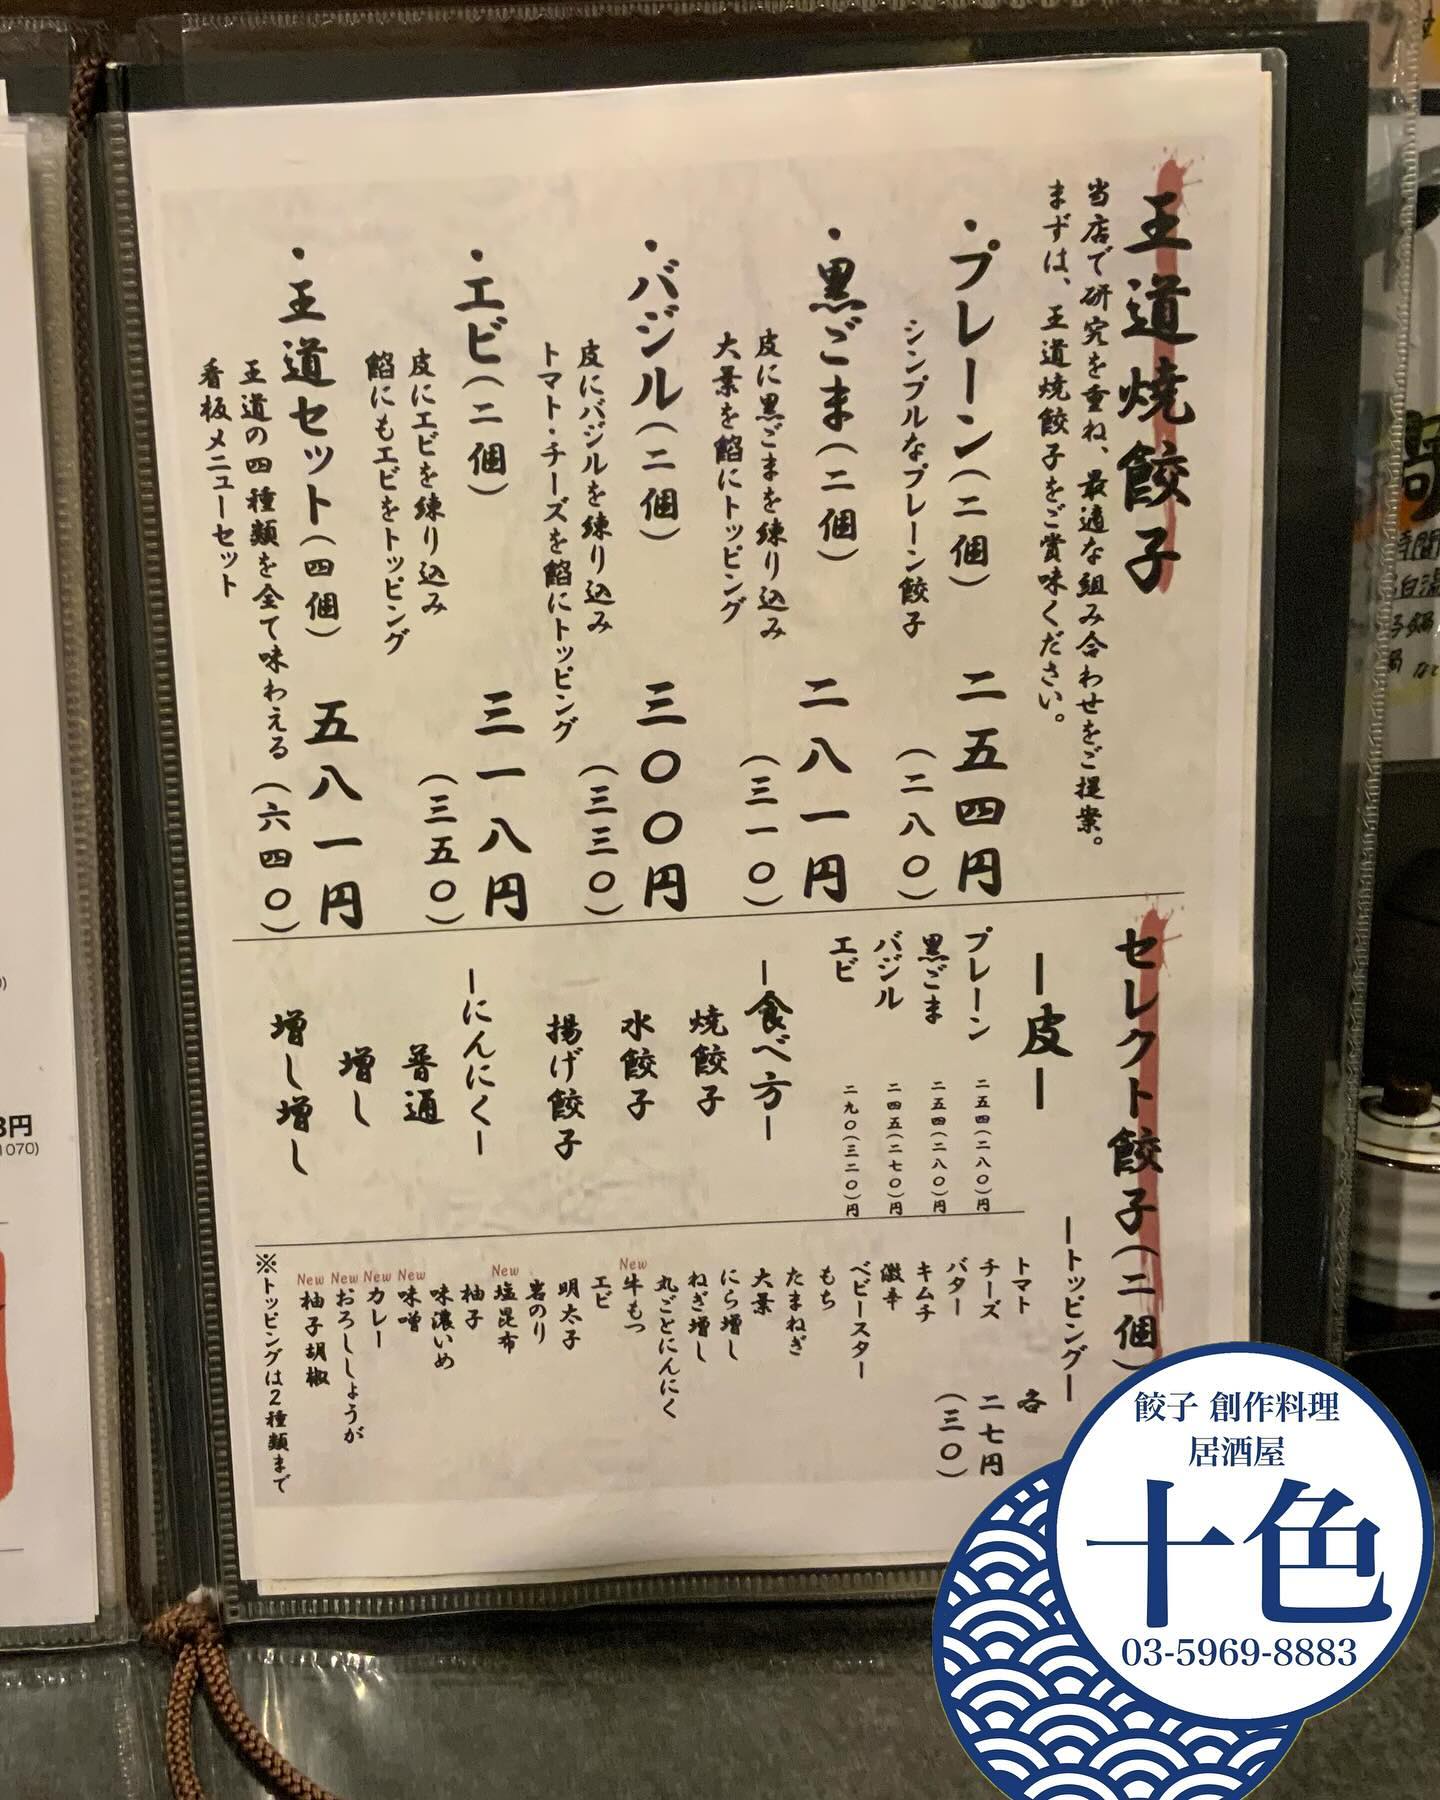 王道焼餃子
当店で研究を重ね、最適な組み合わせをご提案。
まずは、王道焼餃子をご賞味ください。
・プレーン(二個) 二五四円
シンプルなプレーン餃子 (二八〇)
・黒ごま(二個) 二八一円
皮に黒ごまを練り込み
大葉を餡にトッピング (三一〇)
・バジル(二個) 三〇〇円
皮にバジルを練り込み (三三〇)
トマト・チーズを餡にトッピング
・エビ(二個) 三一八円
皮にエビを練り込み (三五〇)
餡にもエビをトッピング
・王道セット(四個) 五八一円
王道の四種類を全て味わえる (六四〇)
看板メニューセット
セレクト餃子(二個)
ー皮ー
プレーン 二五四(二八〇)円
黒ごま 二五四(二八〇)円
バジル 二四五(二七〇)円
エビ 二九〇(三二〇)円
ー食べ方ー
焼餃子
水餃子
揚げ餃子
ーにんにくー
普通
増し
増し増し
ートッピングー
各二七円
(三〇)
トマト
チーズ
バター
キムチ
激辛
ベビースター
もち
たまねぎ
大葉
にら増し
ねぎ増し
丸ごとにんにく
New 牛もつ
エビ
明太子
岩のり
New 塩昆布
柚子
味濃いめ
New 味噌
New カレー
New おろししょうが
New 柚子胡椒
※トッピングは2種類まで
餃子 創作料理
居酒屋
十色
03-5969-8883